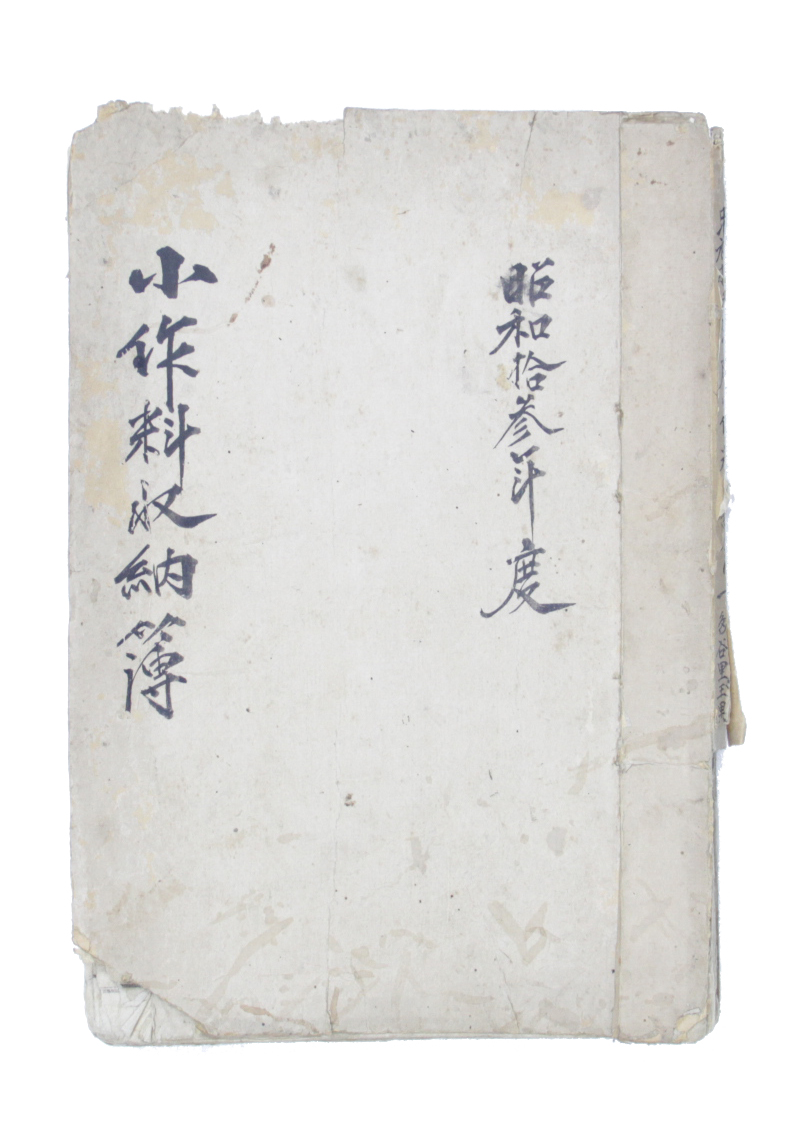 昭和拾参年度
小作料収納簿